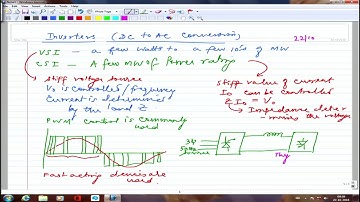 Inverters (DC to AC Conversion)
22/10
VSI - a few watts to a few 10s of MW
CSI - A few MW of Power rating
Stiff voltage source
Vo is controlled/frequency
Current is determined
by the load Z
PWM control is commonly
used
Stiff value of current
Io can be controlled
ZIo = Vo
Impedance deter
-mines the voltage
3φ
50Hz
source
Thy
Fast acting devices are
used.